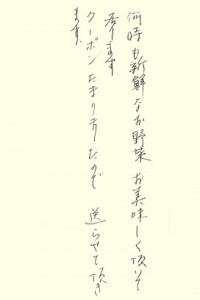 何時も新鮮なお野菜お美味しく頂いて
居ります。
クーポンたまりましたので 送らせて頂き
ます。